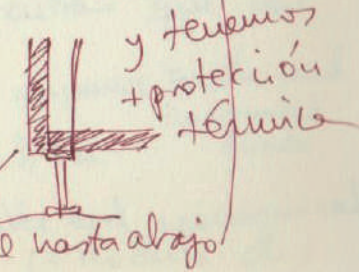 y tenemos
+ protección
térmica
e hasta abajo